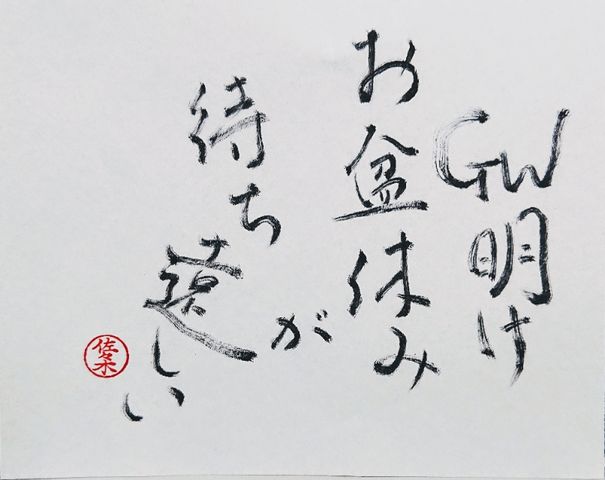 GW明け
お盆休み
が
待ち遠しい
佐々木